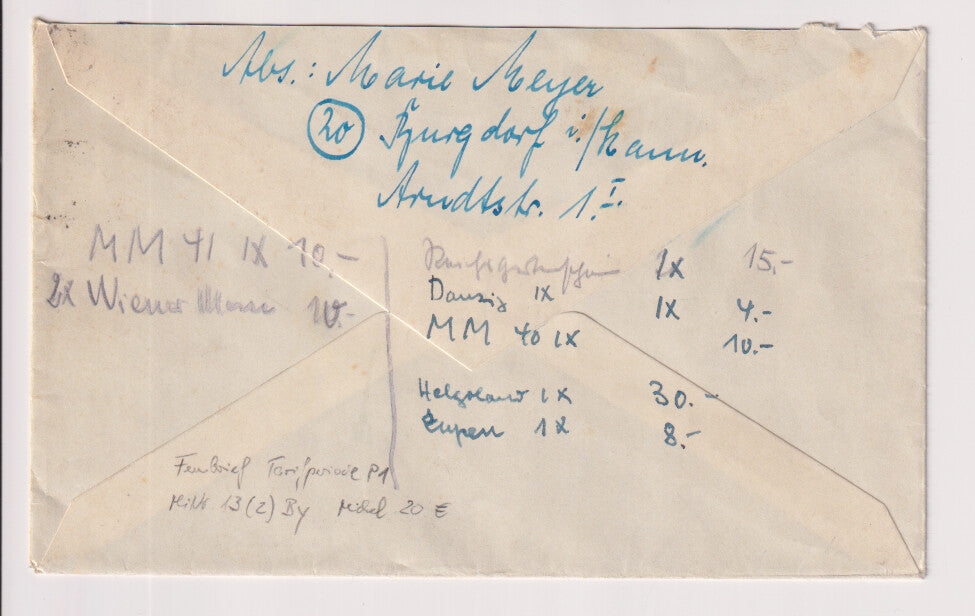 Abs.: Marie Meyer
20 Burgdorf i./Hann.
Arndtstr. 1.I.
MM 41 IX 10.-
2x Wiener Messe 10.-
Reichsgartenschau 1x 15.-
Danzig 1x 1x 4.-
MM 40 1x 10.-
Helgoland 1x 30.-
Eupen 1x 8.-
Fernbrief Tarifperiode P1
MiNr 13 (z) By Michel 20 €